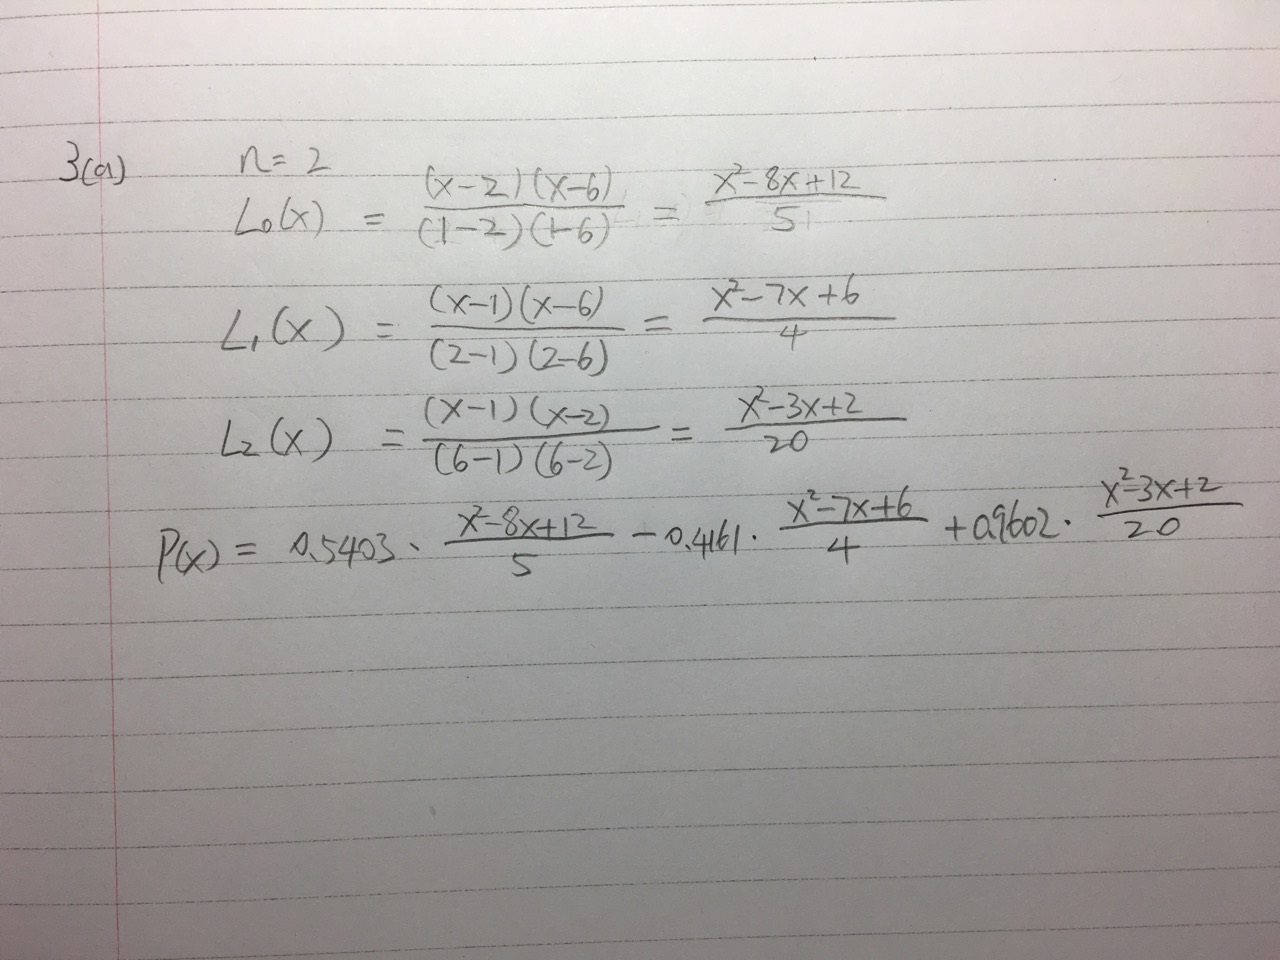 3(a) n = 2
L₀(x) = (x-2)(x-6) / (1-2)(1-6) = x²-8x+12 / 5
L₁(x) = (x-1)(x-6) / (2-1)(2-6) = x²-7x+6 / 4
L₂(x) = (x-1)(x-2) / (6-1)(6-2) = x²-3x+2 / 20
P(x) = 0.5403 · x²-8x+12 / 5 - 0.4161 · x²-7x+6 / 4 + 0.9602 · x²-3x+2 / 20